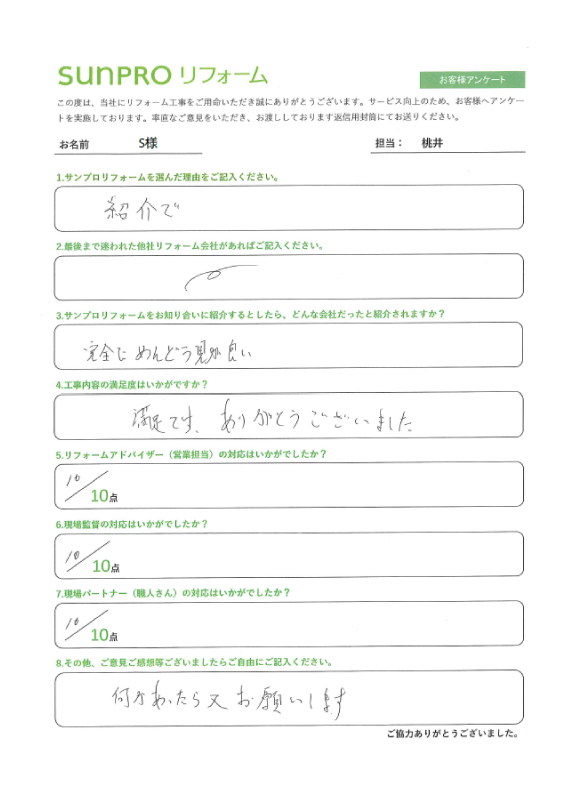 SunPRO リフォーム
お客様アンケート
この度は、当社にリフォーム工事をご用命いただき誠にありがとうございます。サービス向上のため、お客様へアンケー
トを実施しております。率直なご意見をいただき、お渡ししております返信用封筒にてお送りください。
お名前 S様 担当： 桃井
1.サンプロリフォームを選んだ理由をご記入ください。
紹介で
2.最後まで迷われた他社リフォーム会社があればご記入ください。
3.サンプロリフォームをお知り合いに紹介するとしたら、どんな会社だったと紹介されますか？
完全に めんどう見が良い
4.工事内容の満足度はいかがですか？
満足です、ありがとうございました
5.リフォームアドバイザー（営業担当）の対応はいかがでしたか？
10/10点
6.現場監督の対応はいかがでしたか？
10/10点
7.現場パートナー（職人さん）の対応はいかがでしたか？
10/10点
8.その他、ご意見ご感想等ございましたらご自由にご記入ください。
何かあったら又お願いします
ご協力ありがとうございました。